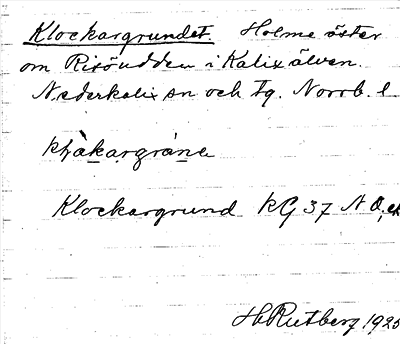 Klockargrundet. Holme öster
om Risöudden i Kalix älven.
Nederkalix sn och tg. Norrb. l
Klockargrund KG 37 N O,
H. Rutberg 1925